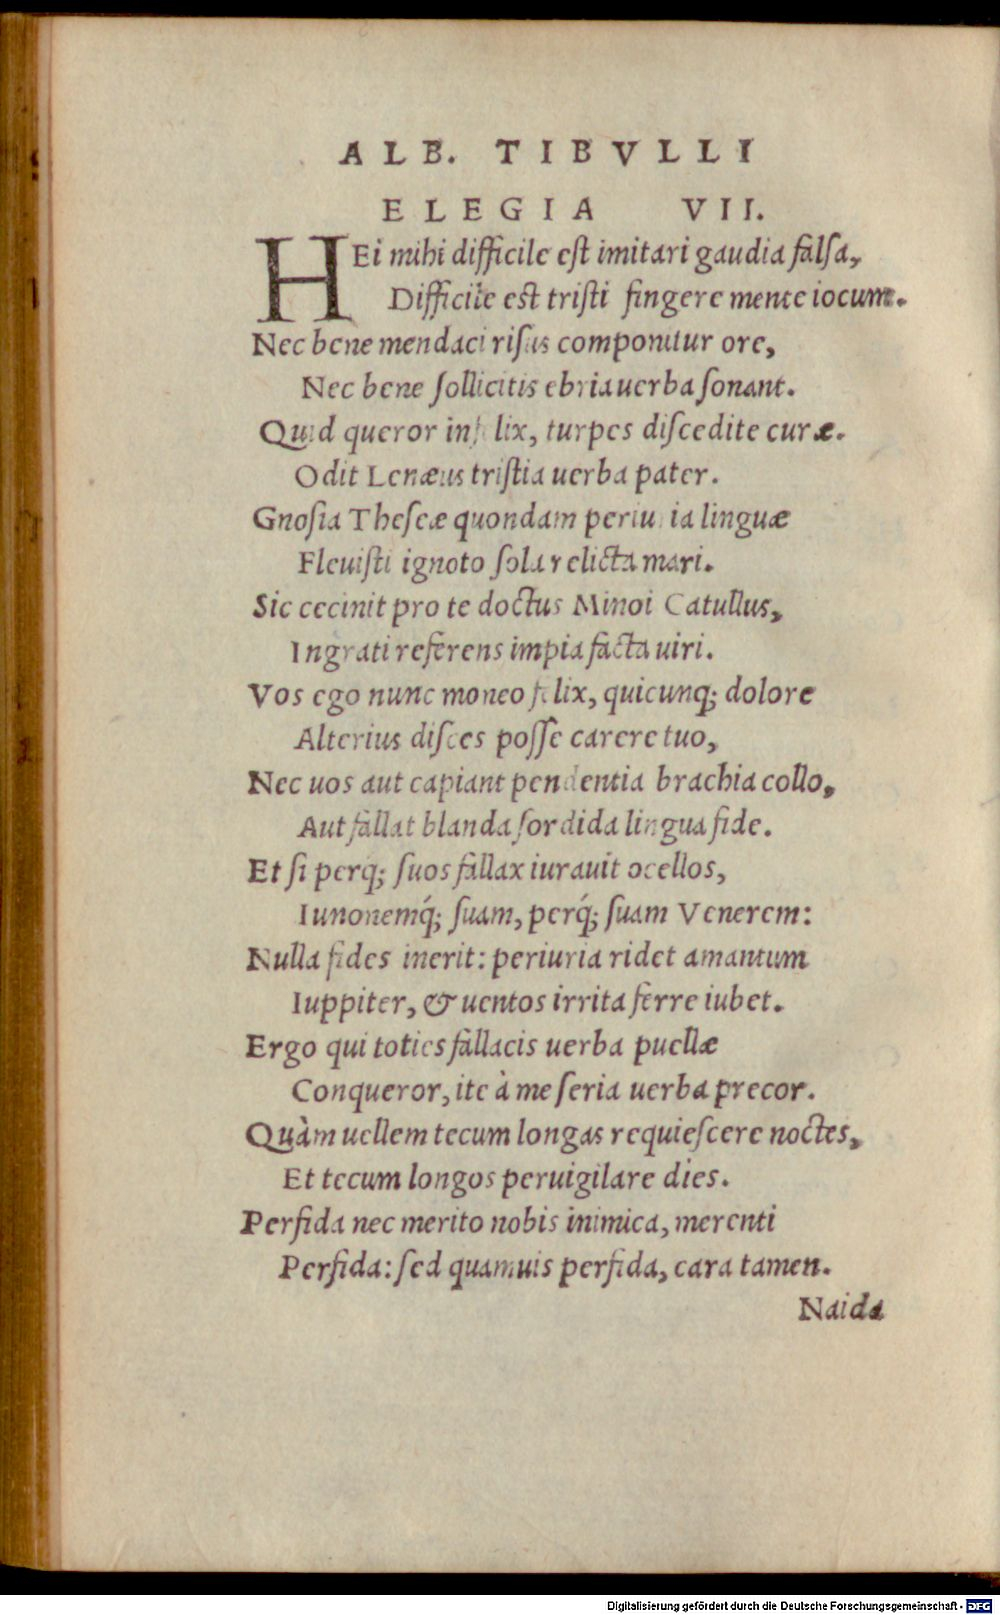 ALB. TIBVLLI
ELEGIA VII.
HEi mihi difficile est imitari gaudia falsa,
Difficile est tristi fingere mente iocum.
Nec bene mendaci risus componitur ore,
Nec bene sollicitis ebria uerba sonant.
Quid queror infelix, turpes discedite curæ.
Odit Lenæus tristia uerba pater.
Gnosia Theseæ quondam periuria linguæ
Fleuisti ignoto sola relicta mari.
Sic cecinit pro te doctus Minoi Catullus,
Ingrati referens impia facta uiri.
Vos ego nunc moneo felix, quicunq; dolore
Alterius disces posse carere tuo,
Nec uos aut capiant pendentia brachia collo,
Aut fallat blanda sordida lingua fide.
Et si perq; suos fallax iurauit ocellos,
Iunonemq́; suam, perq́; suam Venerem:
Nulla fides inerit: periuria ridet amantum
Iuppiter, & uentos irrita ferre iubet.
Ergo qui toties fallacis uerba puellæ
Conqueror, ite à me seria uerba precor.
Quàm uellem tecum longas requiescere noctes,
Et tecum longos peruigilare dies.
Perfida nec merito nobis inimica, merenti
Perfida: sed quamuis perfida, cara tamen.
Naida
Digitalisierung gefördert durch die Deutsche Forschungsgemeinschaft - DFG